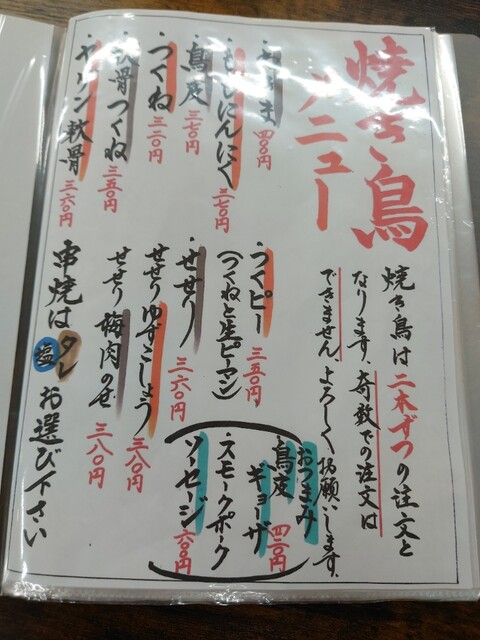 焼き鳥
メニュー
焼き鳥は二本ずつの注文と
なります。奇数での注文は
できません。よろしくお願いします。
・ねぎま 四〇〇円
・ももにんにく 三七〇円
・鳥皮 三七〇円
・つくね 三二〇円
・軟骨つくね 三五〇円
・ヤゲン軟骨 三六〇円
・つくピー 三五〇円
(つくねと生ピーマン)
・せせり 三六〇円
せせりゆずこしょう 三八〇円
せせり梅肉のせ 三八〇円
おつまみ
・鳥皮ギョーザ 四二〇円
・スモークポーク
ソーセージ 六〇〇円
串焼はタレ
塩お選び下さい